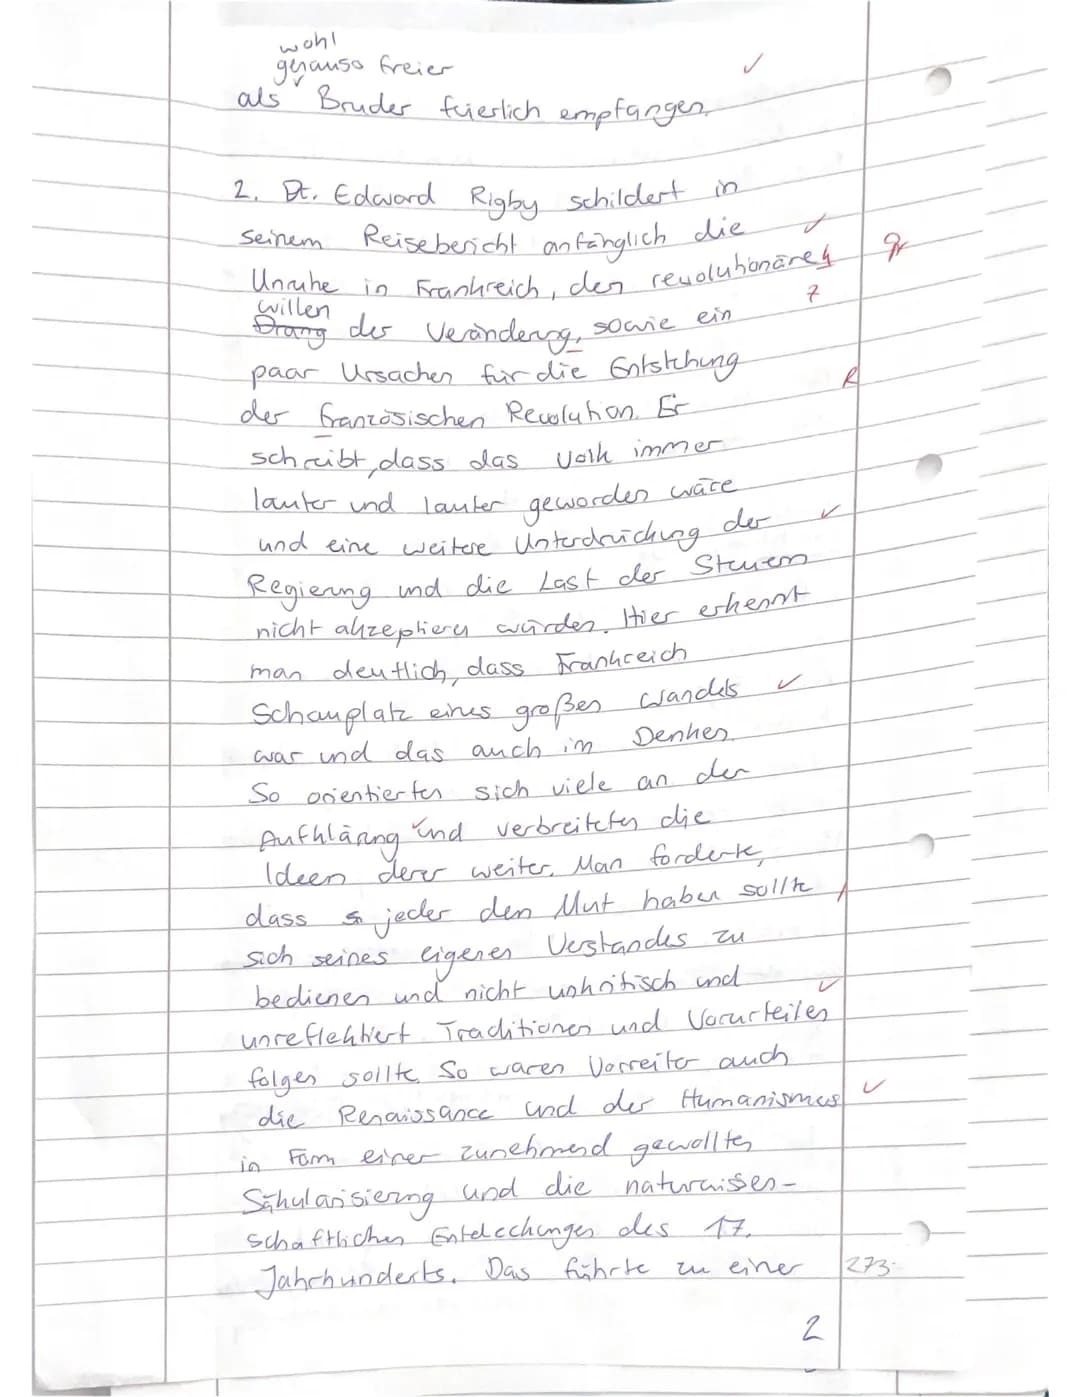 wohl
genauso freier
als Bruder feierlich empfangen.
2. Dr. Edward Rigby schildert in
seinem Reisebericht anfänglich die
Unruhe in Frankreich, den revolutionären
gr
willen
Drang der Veränderung, sowie ein
7
paar Ursachen für die Entstehung
R
der französischen Revolution. Er
schreibt, dass das Volk immer
lauter und lauter geworden wäre
und eine weitere Unterdrückung der
Regierung und die Last der Steuern
nicht akzeptieren würden. Hier erkennt
man deutlich, dass Frankreich
Schauplatz eines großen Wandels
war und das auch im Denken.
So orientierten sich viele an der
Aufklärung und verbreiteten die
Ideen derer weiter. Man forderte,
dass jeder den Mut haben sollte
sich seines eigenen Verstandes zu
bedienen und nicht unkritisch und
unreflektiert Traditionen und Vorurteilen
folgen sollte. So waren Vorreiter auch
die Renaissance und der Humanismus
in Form einer zunehmend gewollten
Säkularisierung und die naturwissen-
schaftlichen Entdeckungen des 17.
Jahrhunderts. Das führte zu einer
273
2